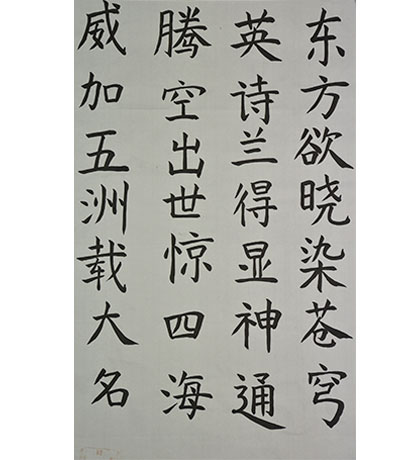 东方欲晓染苍穹
英诗兰得显神通
腾空出世惊四海
威加五洲载大名